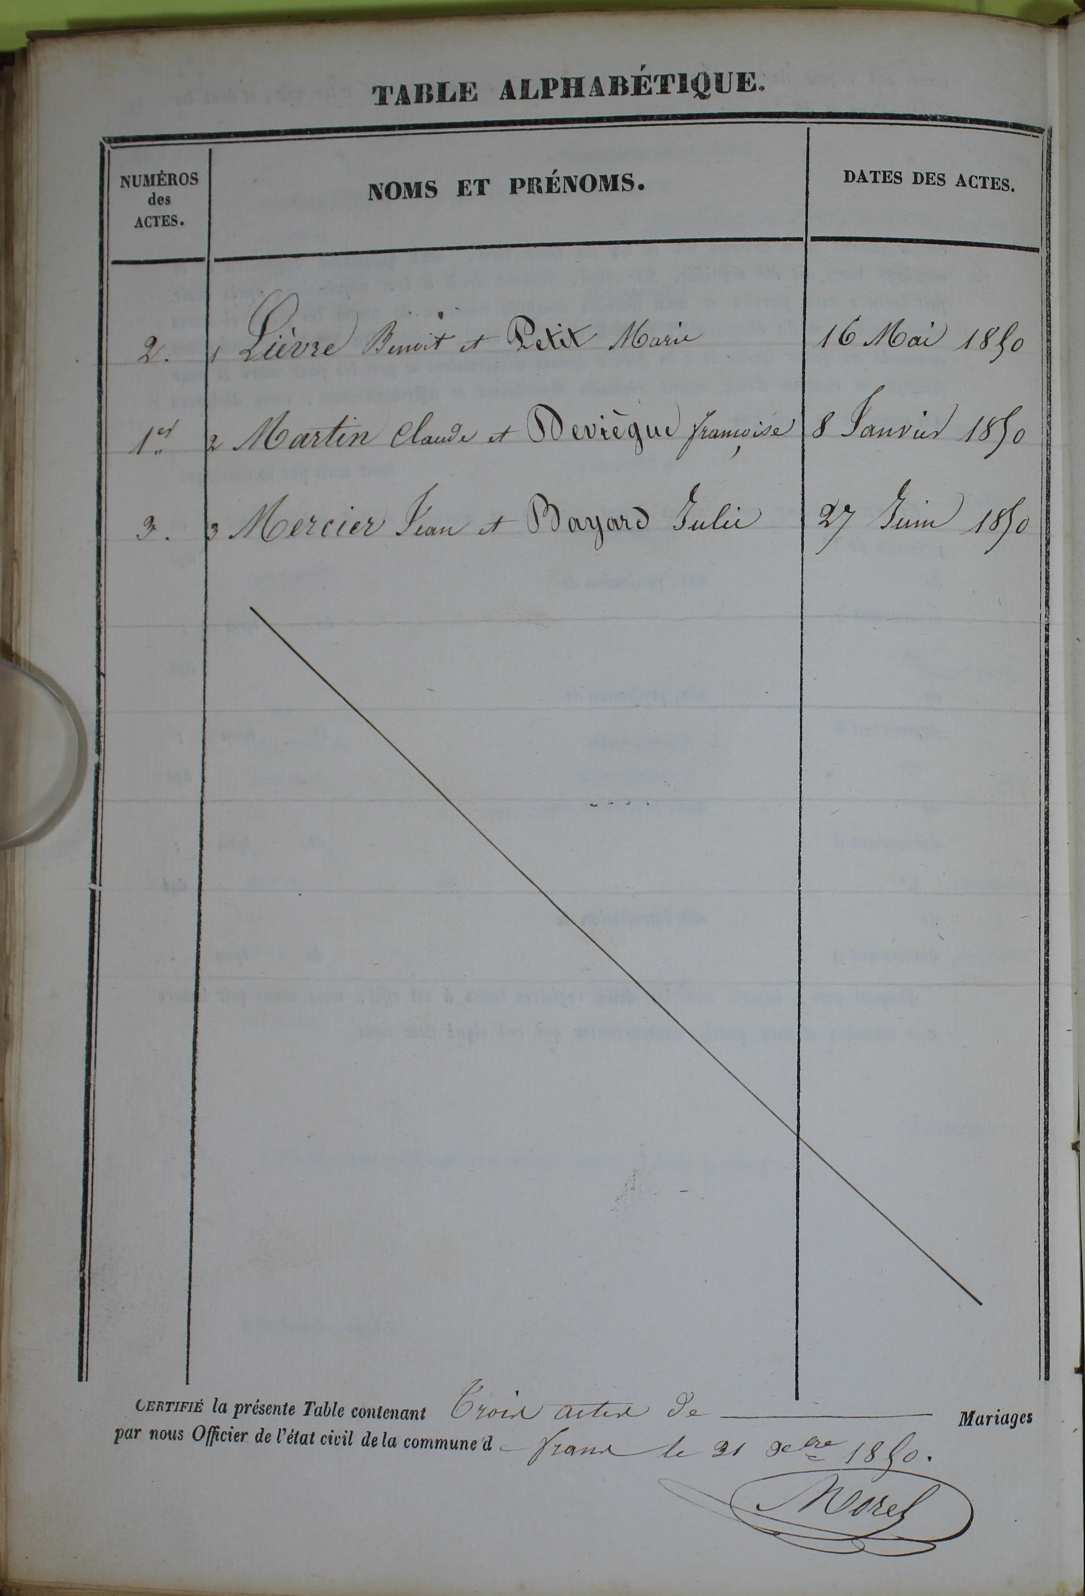 TABLE ALPHABÉTIQUE.
NUMÉROS
des
ACTES.
NOMS ET PRÉNOMS.
DATES DES ACTES.
2. 1 Lièvre Benoit et Petit Marie 16 Mai 1850
1er 2 Martin Claude et Devrègue françoise 8 Janvier 1850
3. 3 Mercier Jean et Bayard Julie 27 Juin 1850
CERTIFIÉ la présente Table contenant Trois actes de Mariages
par nous Officier de l'état civil de la commune d frans le 31 Xbre 1850.
Morel